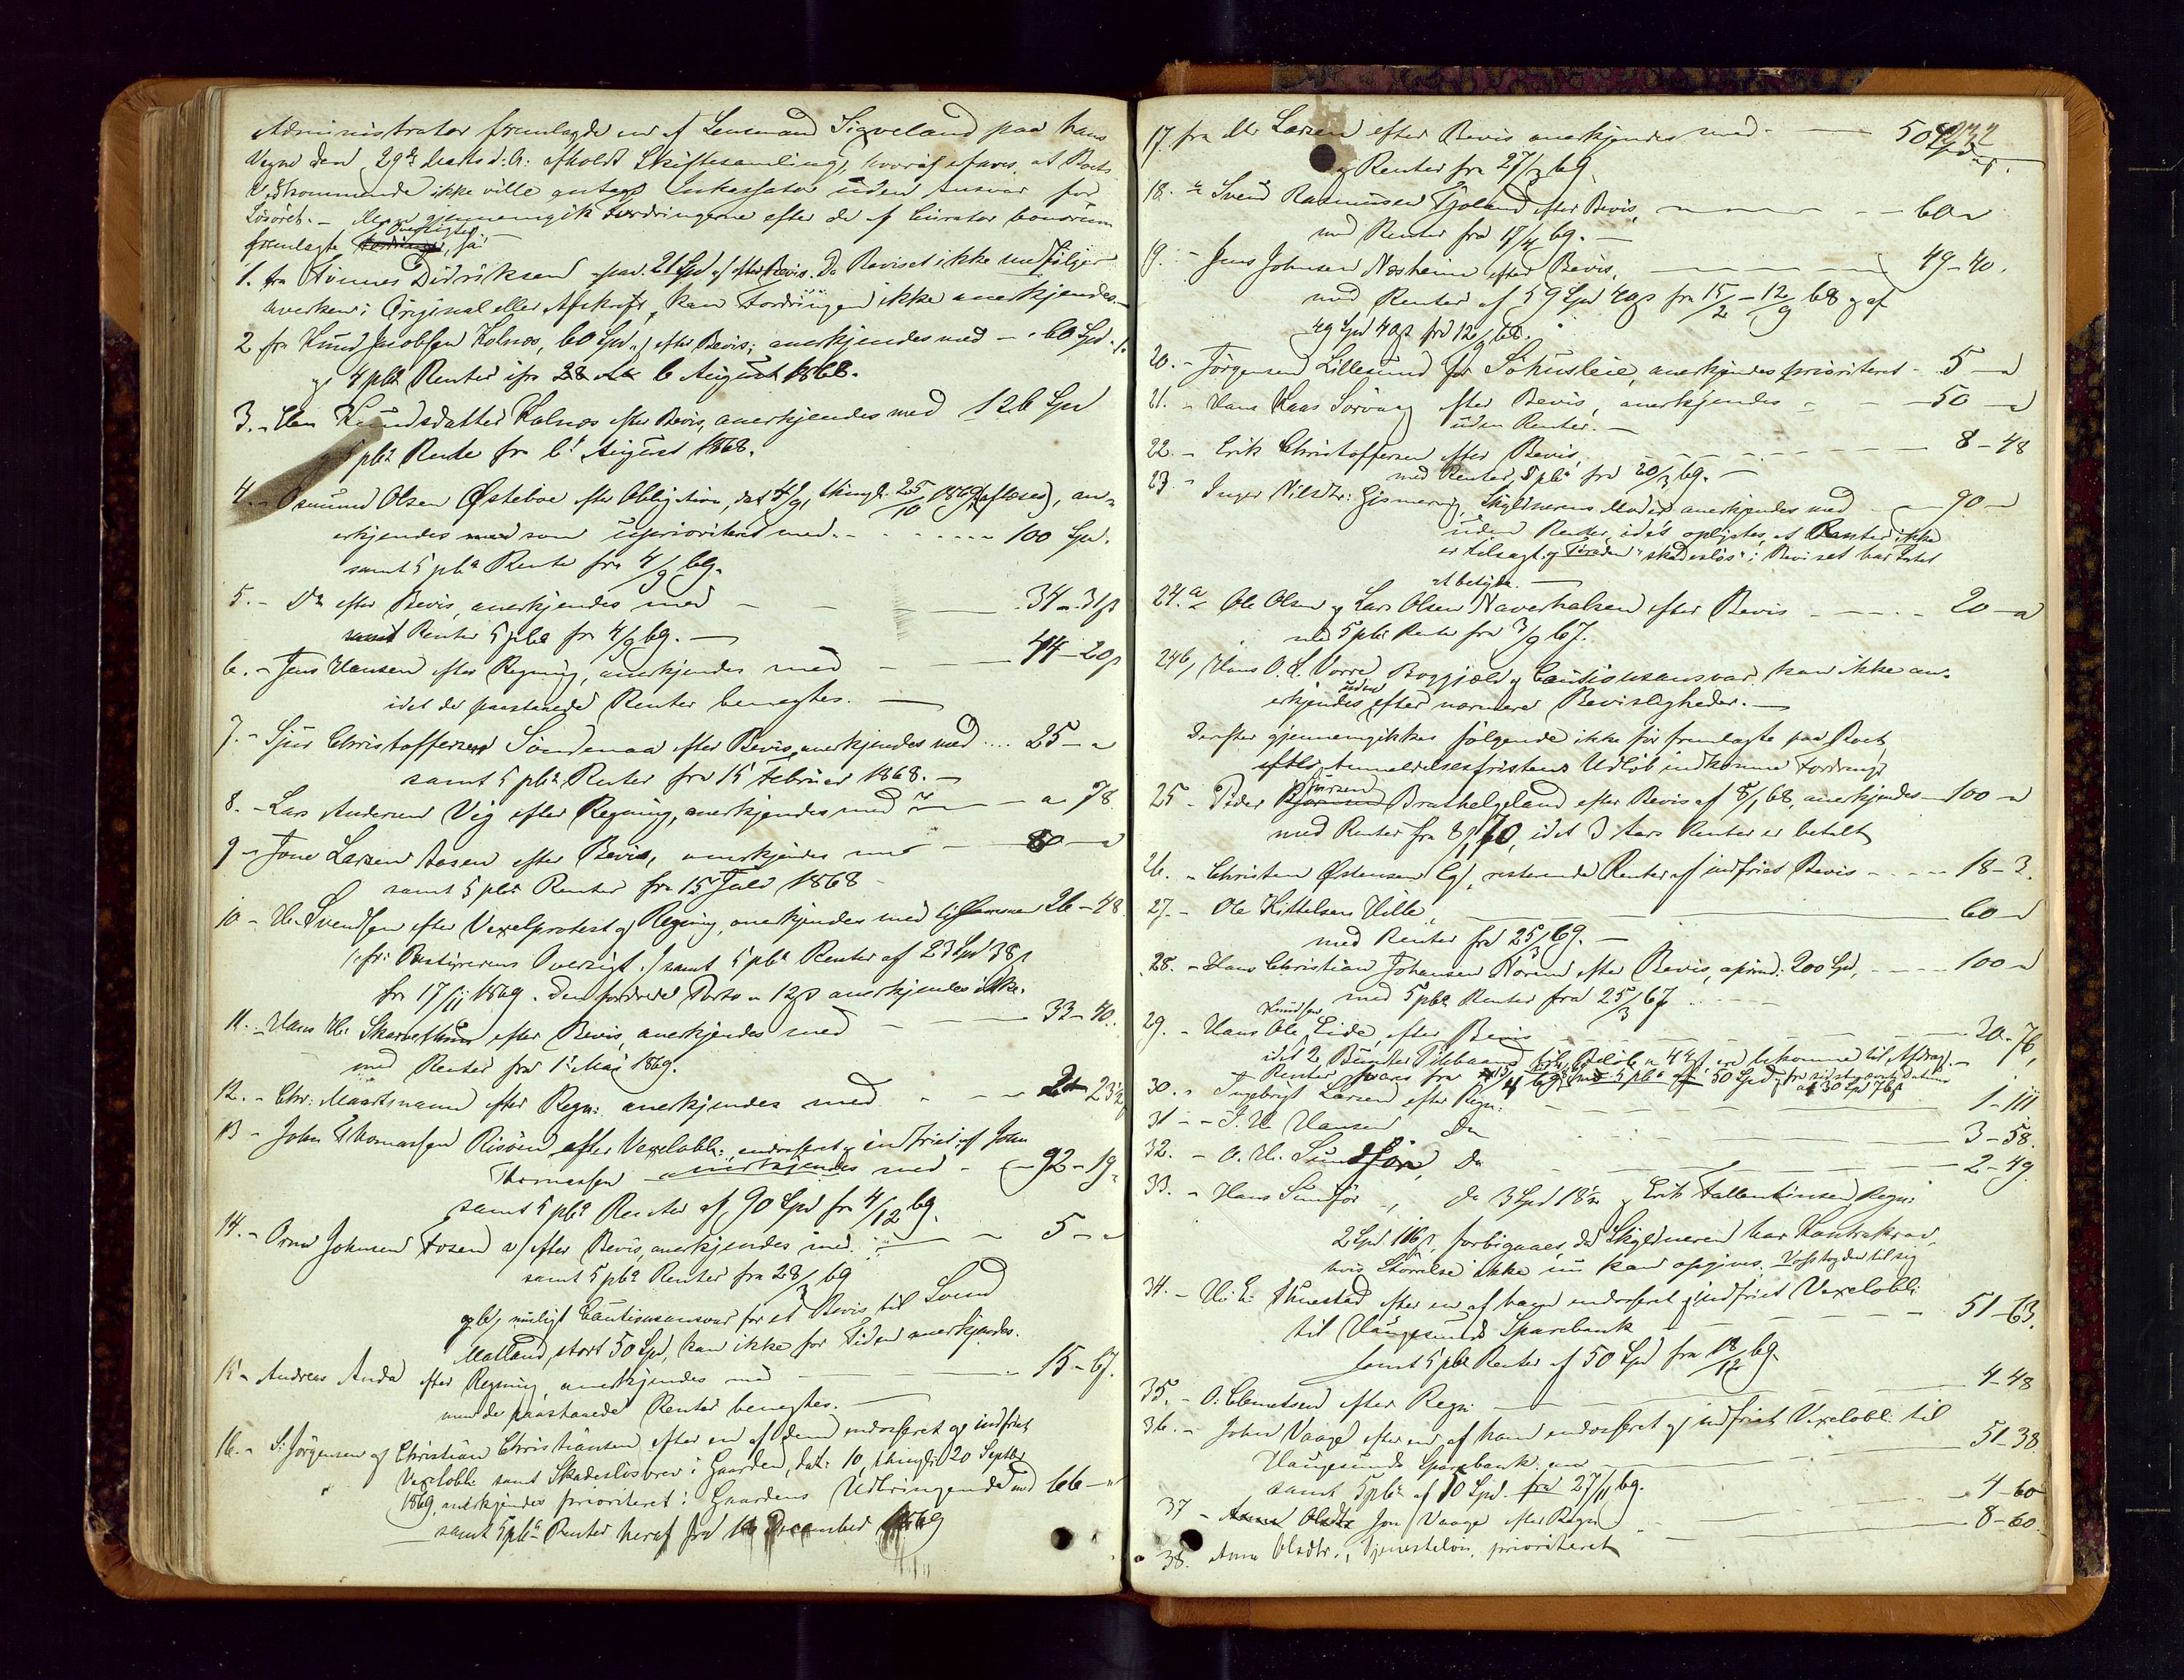 Administrator fremlagde en af Lensmand Sigveland paa hans
Vegne den 29de Marts d: A: afholdt Skiftesamling, hvoraf erfares, at
Vedkommende ikke ville antage Inkassator uden Ansvar for
Løsøret. — gjennemgik Fordringerne efter de af Curator bonorum
fremlagte Oversigter, saa:
1. fra Didriksen paa 21 Spd efter Bevis. Da Beviset ikke medfølger
hverken i Original eller Afskrift, kan Fordringen ikke anerkjendes. —
2 fra Knud Jacobsen Kolnæs, 60 Spd efter Bevis; anerkjendes med — 60 Spd.
og 4 pCt Renter fra 6 August 1868.
3. Knudsdatter Kolnæs efter Bevis, anerkjendes med 126 Spd
5 pCt Rente fra 6t August 1868.
4. Osmund Olsen Østebøe efter Obligation, dat 4/9, thingl. 25/10 1869 (aflæses), an-
erkjendes som uprioriteret med - - - - 100 Spd.
samt 5 pCt Rente fra 4/9 69.
5. - Do efter Bevis, anerkjendes med - - 34 - 31 s
samt Renter 5 pCt fra 4/9 69. —
6. - Jens Hansen efter Regning, anerkjendes med - 44 - 20 s
idet de paastaaede Renter benegtes. —
7. - Sjur Christoffersen Søndenaa efter Bevis, anerkjendes med .... 25 - "
samt 5 pCt Renter fra 15 Februar 1868. —
8. - Lars Andersen Vig efter Regning, anerkjendes med - " 78
9 - Tone Larsen Aasen efter Bevis, anerkjendes med - 80 - "
samt 5 pCt Renter fra 15 Juli 1868
10 - Svendsen efter Vexelprotest og Regning, anerkjendes med 26 - 48
Oversigt) samt 5 pCt Renter af 23 Spd 38 s
fra 17/11 1869. Den fordrede Porto 12 s anerkjendes ikke.
11. - Hans efter Bevis, anerkjendes med - 33 - 40.
med Renter fra 1t Mai 1869.
12. - Chr: Maartmann efter Regn: anerkjendes med - -
13 - John Thomassen Risøen efter Vexelobl: endosseret og indfriet af John
Thomassen anerkjendes med - 92 - 19
samt 5 pCt Renter af 90 Spd fra 4/12 69.
14. - Johnsen Fosen a/ efter Bevis, anerkjendes med - 5 - "
samt 5 pCt Renter fra 28/3 69
og b/, muligt Cautionsansvar for et Bevis til Svend
Matland, stort 50 Spd, kan ikke for Tiden anerkjendes.
15 - Andreas Anda efter Regning, anerkjendes med - 15 - 67.
men de paastaaede Renter benegtes. —
16. - S: Jørgensen og Christian Christiansen efter en af dem endosseret og indfriet
Vexelobl: samt Skadesløsbrev i Gaarden, dat: 10, thingl: 20 Septbr
1869, anerkjendes prioriteret i Gaardens Udbringende med 66 - "
samt 5 pCt Renter heraf fra December 1869
17. fra Larsen efter Bevis anerkjendes med - 50 Spd
og Renter fra 27/3 69.
18. - Svend Rasmussen Tjoland efter Bevis, - - 60 "
med Renter fra 17/4 69. —
19. - Jens Johnsen Næsheim efter Bevis, - 49 - 40.
med Renter af 59 Spd 40 s fra 15/2 - 12/9 68 og af
49 Spd 40 s fra 12/9 68.
20. - Jørgensen Lillesund for Søhusleie, anerkjendes prioriteret - 5 - "
21. - Hans Haas Sørvaag efter Bevis, anerkjendes - - 50 - "
uden Renter. —
22. - Erik Christoffersen efter Bevis - 8 - 48
med Renter 5 pCt fra 20/3 69. —
23. - Inger Nilsdtr: Gismervig, Skyldnerens Moder anerkjendes med - 90 - "
uden Renter, idet oplystes, at Renter ikke
er tilsagt, og "skadesløs" i Beviset har Intet
at betyde. —
24.a - Ole Olsen og Lars Olsen Naverhalsen efter Bevis - - 20 - "
med 5 pCt Renter fra 3/9 67.
24b, Hans Vorre, Boggjæld og Cautionsansvar, kan ikke an-
erkjendes uden efter nærmere Bevisligheder. —
Derefter gjennemgikkes følgende ikke før fremlagte paa
Anmeldelsesfristens Udløb indkomne Fordringer
25 - Peder Brathelgeland efter Bevis af 8/1 68, anerkjendes - 100 - "
med Renter fra 8/1 70, idet 3 Aars Renter er betalt
26. - Christen Østensen resterende Renter af indfriet Bevis - 18 - 3.
27. - Ole Kittelsen Ville, - 60 - "
med Renter fra 25/3 69. —
28. - Hans Christian Johansen efter Bevis, oprind: 200 Spd, - 100 - "
med 5 pCt Renter fra 25/3 67
29. - Hans Ole Knudsen Eide, efter Bevis - 30 - 76,
idet 2 er bekommet til Afdrag. -
Renter svares fra 69 med 5 pCt af 50 Spd og fra sidstnævnte Datum
af 30 Spd 76 s
30. - Ingebrigt Larsen efter Regn: - 1 - 111
31 - - Hansen Do - 3 - 58.
32. - Sundfør, Do - 2 - 49.
33. - Hans Sundfør -, do 3 Spd 18 s og Erik Fallentinsen Regn:
2 Spd 116 s, forbigaaes, da Skyldneren har Kontrakrav,
hvis Størrelse ikke nu kan opgives.
34. - Thuestad efter en af ham endosseret og indfriet Vexelobl:
til Haugesunds Sparebank - 51 - 63.
samt 5 pCt Renter af 50 Spd fra 18/12 69.
35. - O: Clementsen efter Regn: - 4 - 48
36. - John Vaage efter en af ham endosseret og indfriet Vexelobl: til
Haugesunds Sparebank - 51 - 38.
samt 5 pCt af 50 Spd. fra 27/11 69.
37 - Jon Vaage efter Regn: - 4 - 60
38. Anna Olsdtr., Tjenesteløn, prioriteret - 8 - 60.